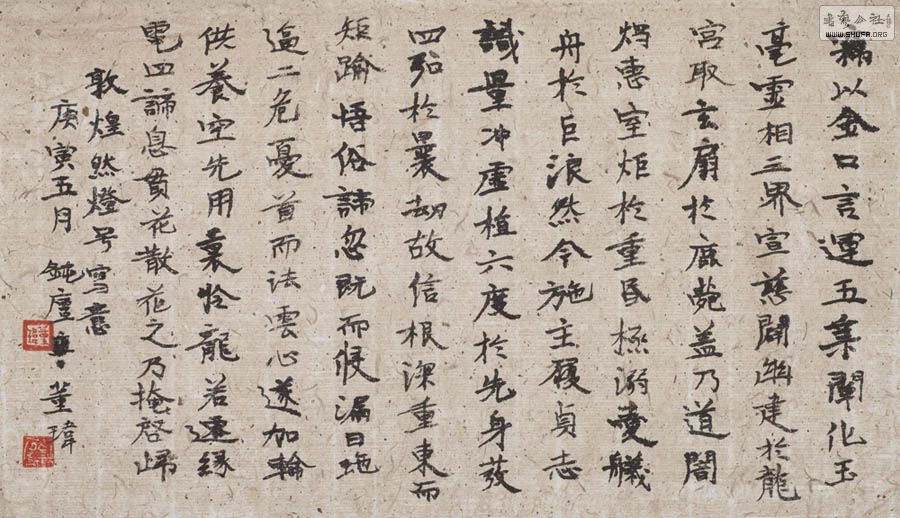 竊以金口言運五乘闡化玉
毫靈相三界宣慈闢幽建於龍
宮取玄扇於鹿菀蓋乃道闇
燭惠室炬於重昏極溺愛艤
舟於巨浪然今施主履貞志
識量沖虛植六度於先身茂
四弘於曩劫故信根深重東而
矩踰悟俗諦忽既而假漏日
逼二危憂首而法雲心遂加輪
供養空先用裏龍若還緣
電四諦息貫花散花之乃掩啓歸
敦煌然燈号寫意
庚寅五月 鈍廬 董瑋
書藝公社
WWW.SHUFA.ORG